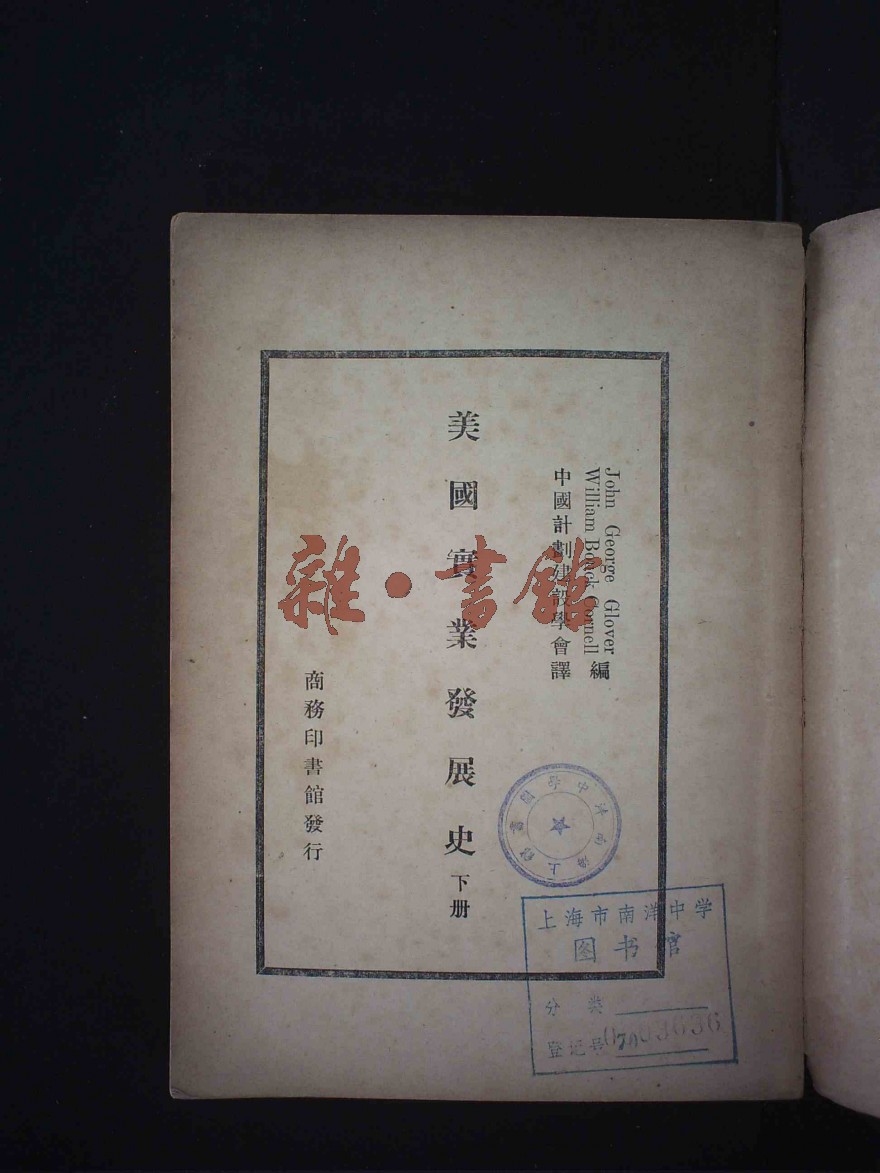 John George Glover
William Bouck Cornell
編
中國計劃建設學會譯
美國實業發展史 下册
商務印書館發行
雜·書館
上海市南洋中学
图书馆
分类
登记号